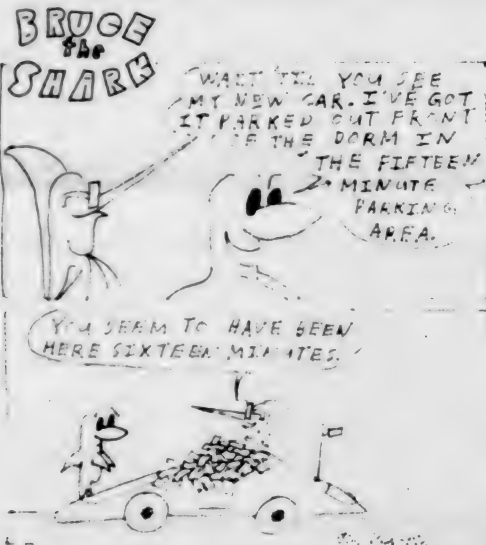 BRUCE
the
SHARK
WAIT TIL YOU SEE
MY NEW CAR. I'VE GOT
IT PARKED OUT FRONT
OF THE DORM IN
THE FIFTEEN
MINUTE
PARKING
AREA.
YOU SEEM TO HAVE BEEN
HERE SIXTEEN MINUTES.